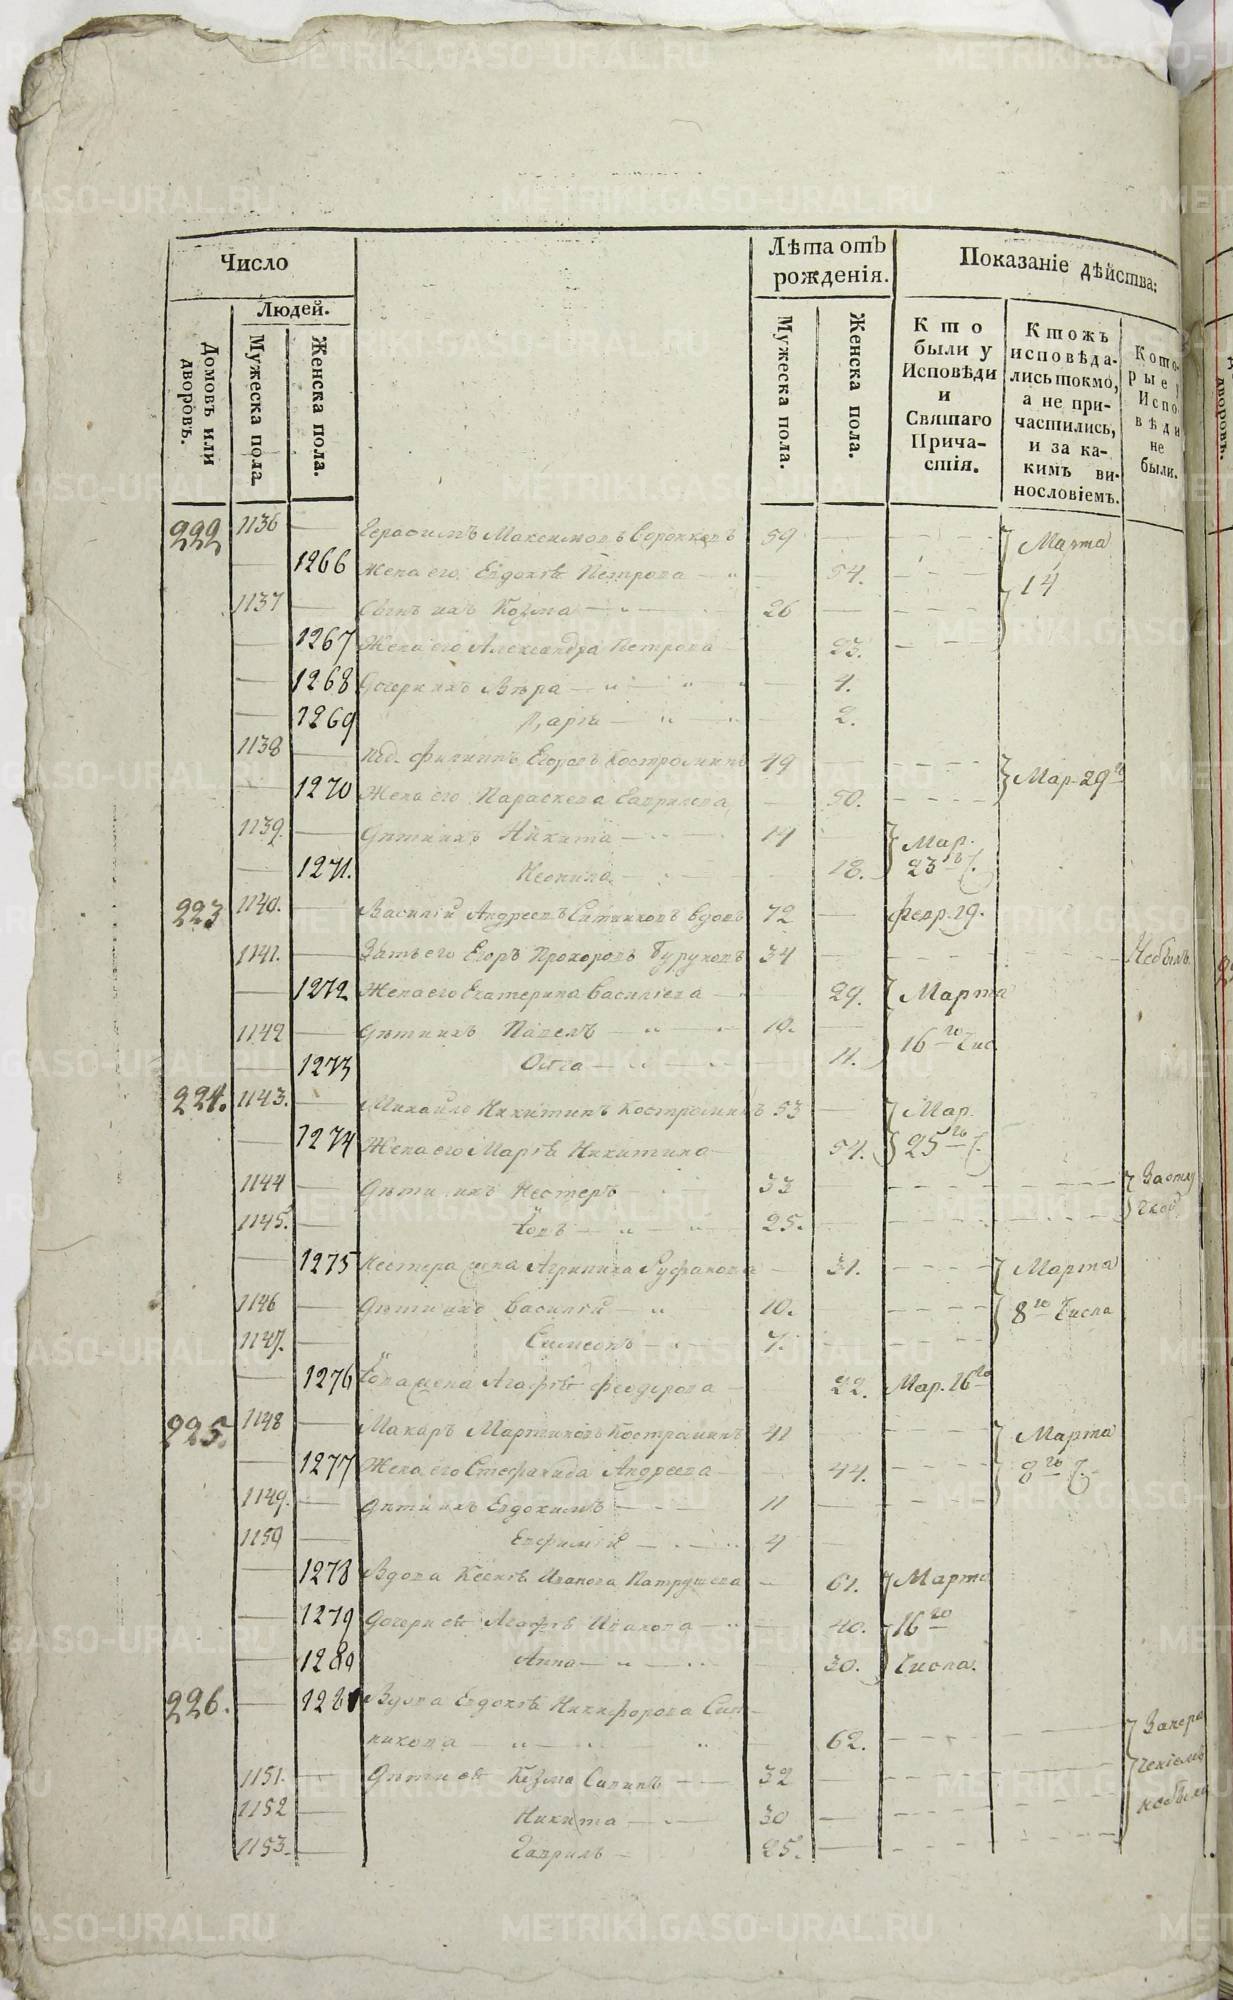 Число
Людей.
Домовъ или дворовъ.
Мужеска пола.
Женска пола.
Лѣта отъ рожденія.
Мужеска пола.
Женска пола.
Показаніе дѣйства:
Кто были у Исповѣди и Святаго Причастія.
Ктожъ исповѣдались токмо, а не причастились, и за какимъ винословіемъ.
Которые у Исповѣди не были.
222 1136 — Герасимъ Максимовъ 59 — Марта
— 1266 Жена его Евдокія Петрова — 54. 14
1137 — Сынъ ихъ Козма — 26 —
— 1267 Жена его Александра Петрова 23.
— 1268 Дочери ихъ Вѣра — 4.
— 1269 Дарія — 2.
1138 — Филиппъ Егоровъ Костроминъ 49 Мар. 29го
— 1270 Жена его Параскева Гаврилова — 50.
1139. — Дѣти ихъ Никита — 14 Мар.
— 1271. Неонила — 18. 23го Ч.
223 1140. — Василій Андреевъ Ситниковъ вдовъ 72 — Февр. 29.
1141. — Зять его Егоръ Прохоровъ 34 — Небылъ
— 1272 Жена его Екатерина Василіева — 29. Марта
1142 — Дѣти ихъ Павелъ — 10. — 16го Чис.
— 1273 Ольга — 11.
224. 1143. — Михайло Никитинъ Костроминъ 53 — Мар.
— 1274 Жена его Марѳа Никитина — 54. 25го Ч.
1144 — Дѣти ихъ Нестеръ 33 — Заотлу
1145. — Іовъ — 25. — чкой
— 1275 Нестера жена Агрипина — 31. Марта
1146 — Дѣти ихъ Василій — 10. 8го Числа
1147. — Симеонъ — 7.
— 1276 Іова жена Агафія Феодорова — 22. Мар. 16го
225. 1148 — Макаръ Мартиновъ Костроминъ 41 Марта
— 1277 Жена его Стефанида Андреева — 44. 8го Ч.
1149. — Дѣти ихъ Евдокимъ — 11 —
1150 — Евфимій — 4 —
— 1278 Вдова Ксенія Иванова Патрушева — 61. Марта
— 1279 Дочери ея Агафія Иванова — 40. 16го
— 1280 Анна — 30. Числа.
226. — 1281 Вдова Евдокія Никифорова Сит-
никова — 62. Запера
1151. — Дѣти ея Козма Савинъ — 32 — ченіемъ
1152 — Никита — 30 — небыли
1153. — Гаврилъ — 25. —
METRIKI.GASO-URAL.RU